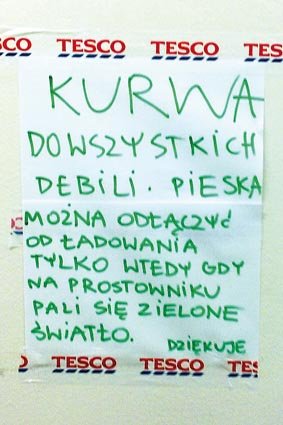 CO TESCO TESCO TESCO
KURWA
DO WSZYSTKICH
DEBILI. PIESKA
MOŻNA ODŁĄCZYĆ
OD ŁADOWANIA
TYLKO WTEDY GDY
NA PROSTOWNIKU
PALI SIĘ ZIELONE
ŚWIATŁO.
DZIĘKUJE
TESCO TESCO TESCO